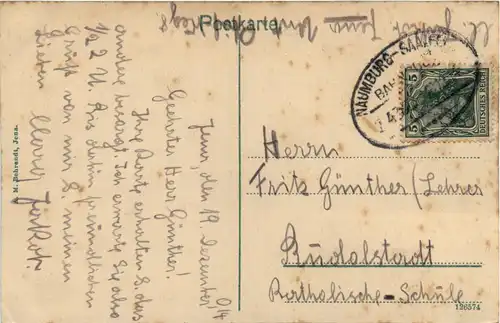 Postkarte
NAUMBURG - SAALFELD
BAHNPOST
5 DEUTSCHES REICH 5
Jena, den 19. Dezember
Geehrter Herr Günther!
Ihre Karte erhalten &. das
andere besorgt. Ich erwarte Sie also
1/2 2 U. Bis dahin freundlichen
Gruß von mir &. meinen
Lieben
Herrn
Fritz Günther (Lehrer
Rudolstadt
Katholische - Schule
126574
M. Jena.